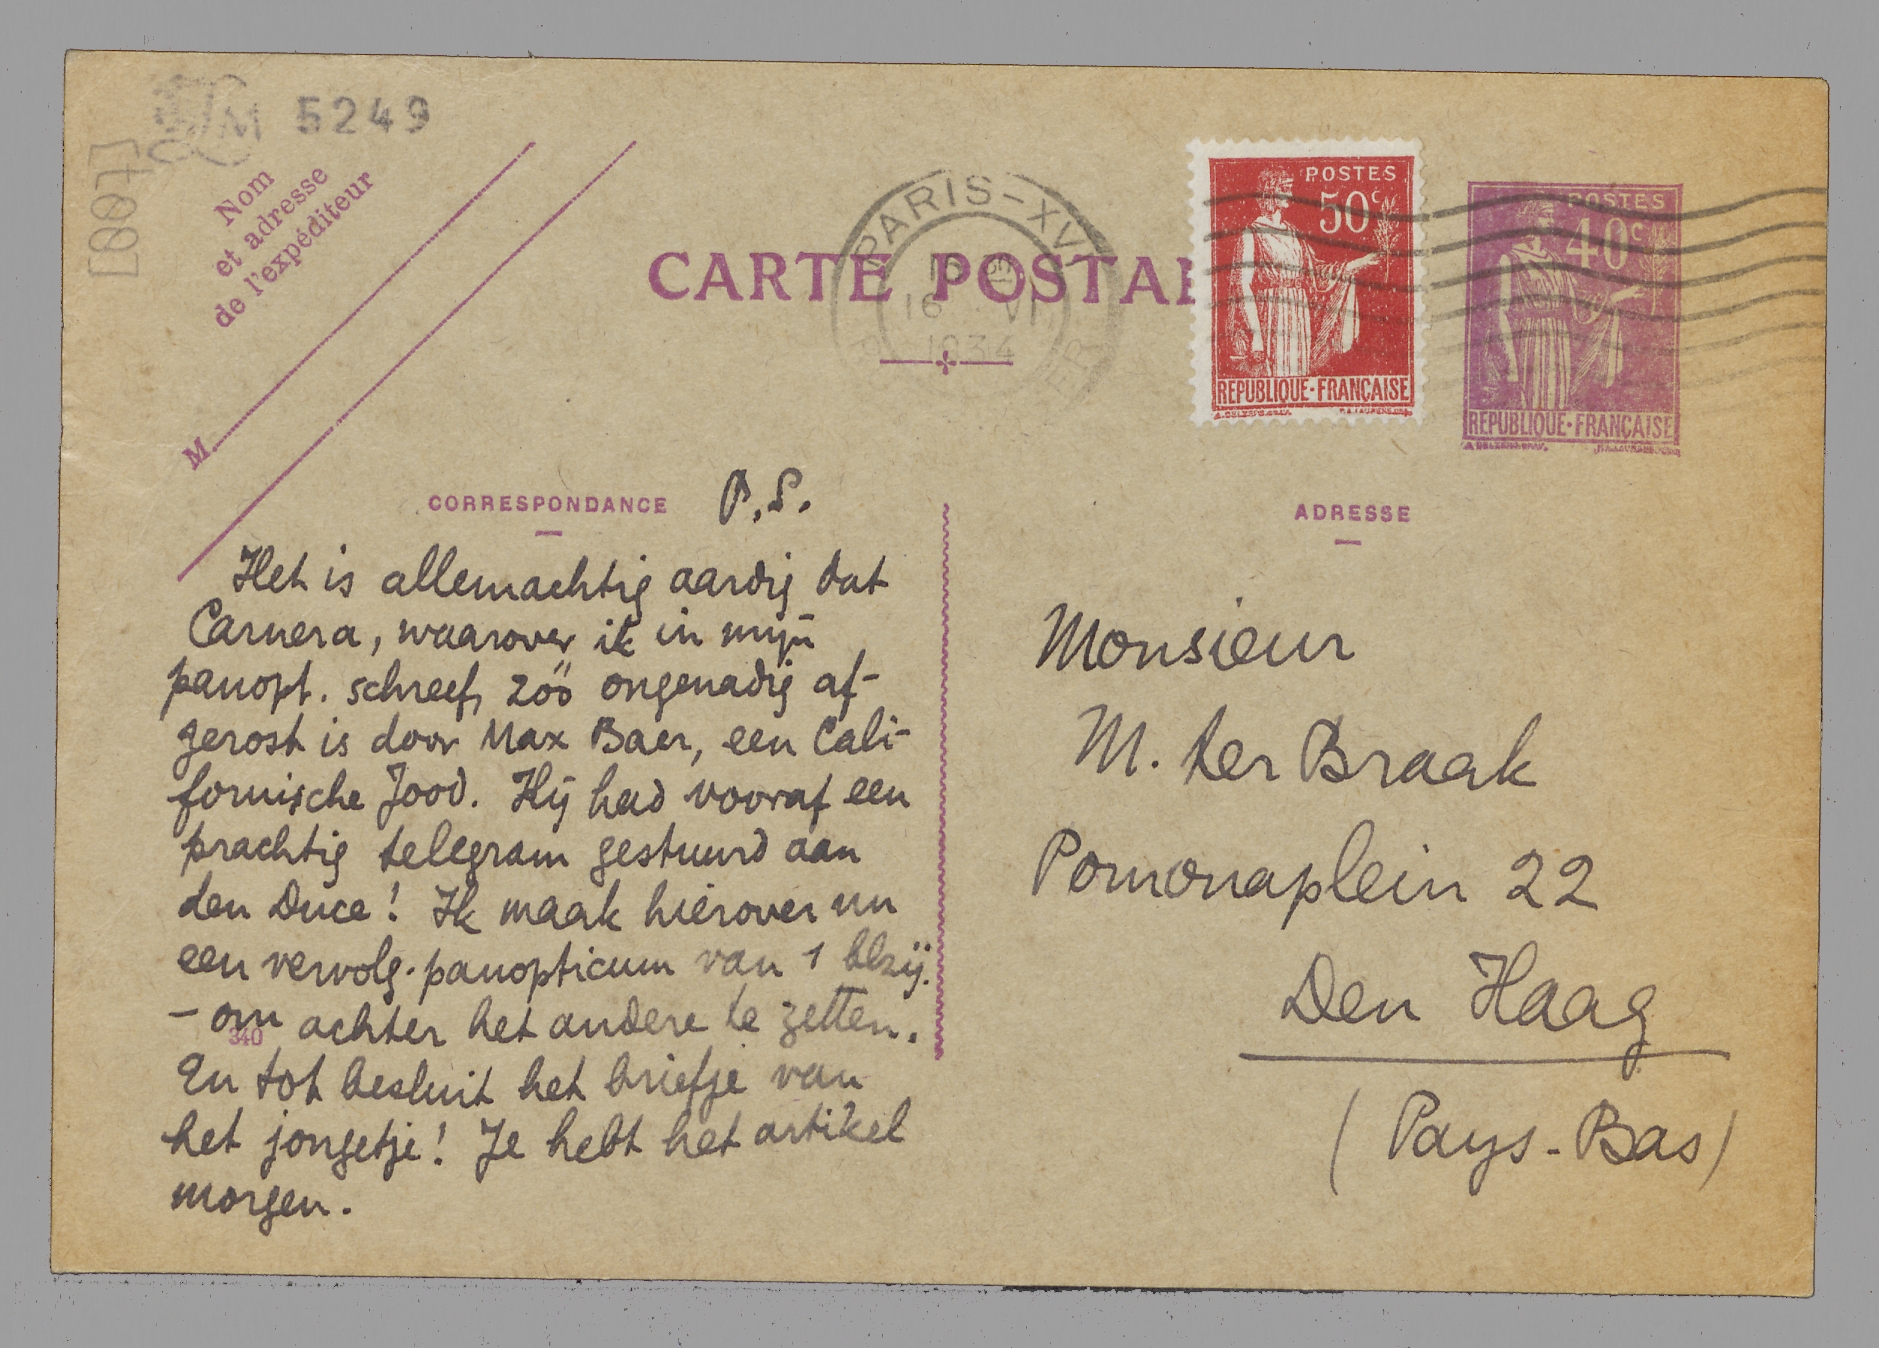 5249
Nom
et adresse
de l'expéditeur
M
CARTE POSTAL
PARIS-XVI
16 VI
1934
POSTES
50c
REPUBLIQUE-FRANÇAISE
POSTES
40c
REPUBLIQUE-FRANÇAISE
CORRESPONDANCE
P.S.
Het is allemachtig aardig dat
Carnera, waarover ik in mijn
panopt. schreef, zóó ongenadig af-
gerost is door Max Baer, een Cali-
fornische Jood. Hij had vooraf een
prachtig telegram gestuurd aan
den Duce! Ik maak hierover nu
een vervolg-panopticum van 1 blzij.
– om achter het andere te zetten.
340
En tot besluit het briefje van
het jongetje! Je hebt het artikel
morgen.
ADRESSE
Monsieur
M. ter Braak
Pomonaplein 22
Den Haag
(Pays-Bas)